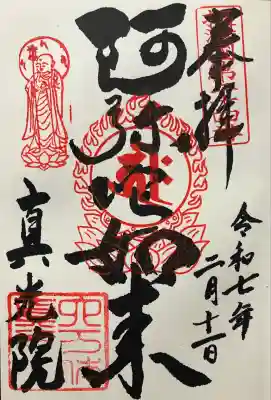 奉拝
令和七年
二月十一日
阿弥陀如来
真光院